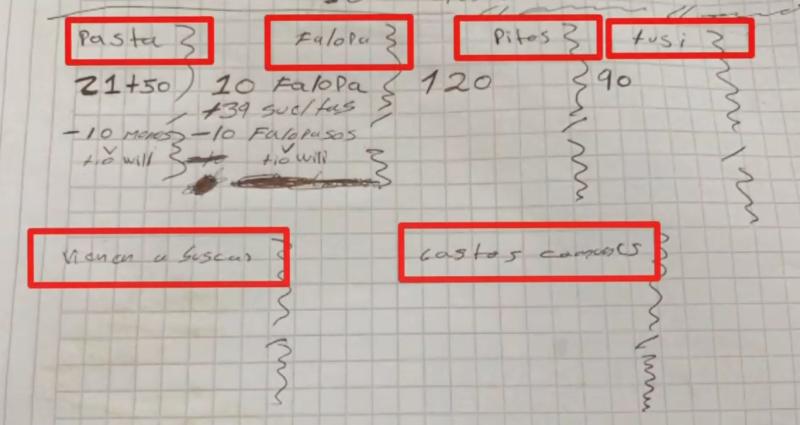 Pasta Falopa Pitos tusi
21+50 10 Falopa 120 90
+39 sueltas
-10 menos -10 Falopasos
tio will tio will
Vienen a buscar Gastos comunes